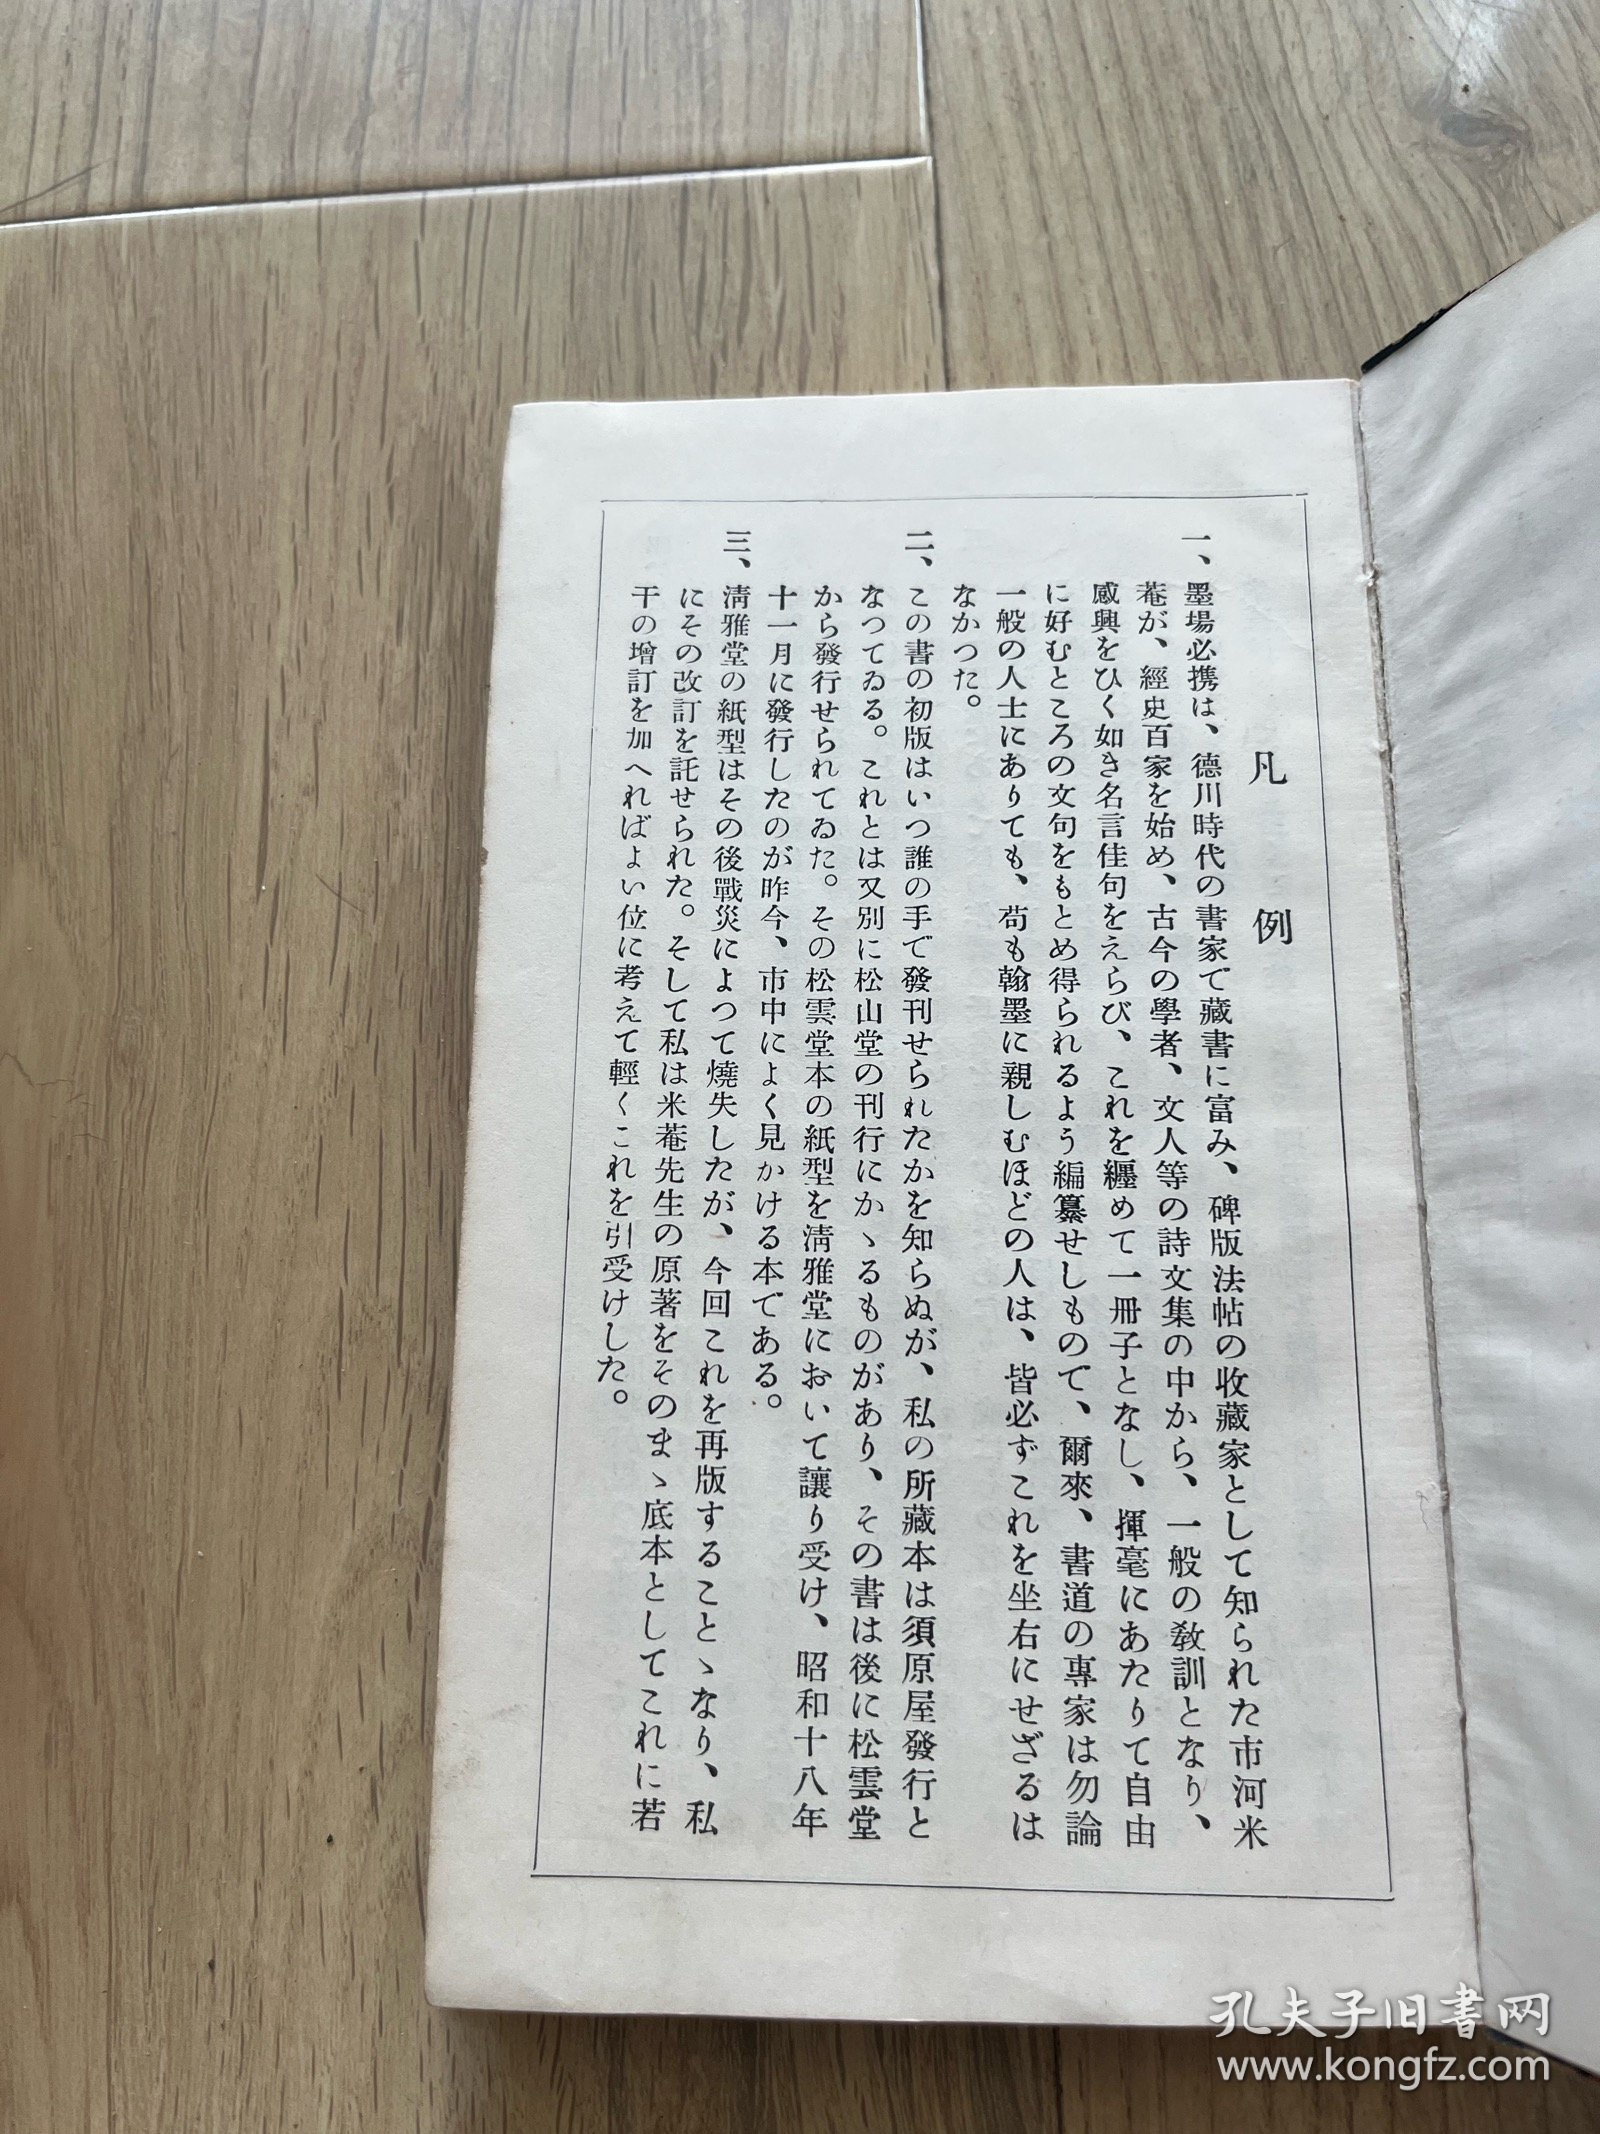 凡例
一、墨場必携は、德川時代の書家で藏書に富み、碑版法帖の收藏家として知られた市河米
菴が、經史百家を始め、古今の學者、文人等の詩文集の中から、一般の教訓となり、
感興をひく如き名言佳句をえらび、これを纒めて一冊子となし、揮毫にあたりて自由
に好むところの文句をもとめ得られるよう編纂せしもので、爾來、書道の專家は勿論
一般の人士にありても、苟も翰墨に親しむほどの人は、皆必ずこれを坐右にせざるは
なかつた。
二、この書の初版はいつ誰の手で發刊せられたかを知らぬが、私の所藏本は須原屋發行と
なつてゐる。これとは又別に松山堂の刊行にかゝるものがあり、その書は後に松雲堂
から發行せられてゐた。その松雲堂本の紙型を淸雅堂において讓り受け、昭和十八年
十一月に發行したのが昨今、市中によく見かける本である。
三、淸雅堂の紙型はその後戰災によつて燒失したが、今回これを再版することゝなり、私
にその改訂を託せられた。そして私は米菴先生の原著をそのまゝ底本としてこれに若
干の增訂を加へればよい位に考えて輕くこれを引受けした。
孔夫子旧书网
www.kongfz.com